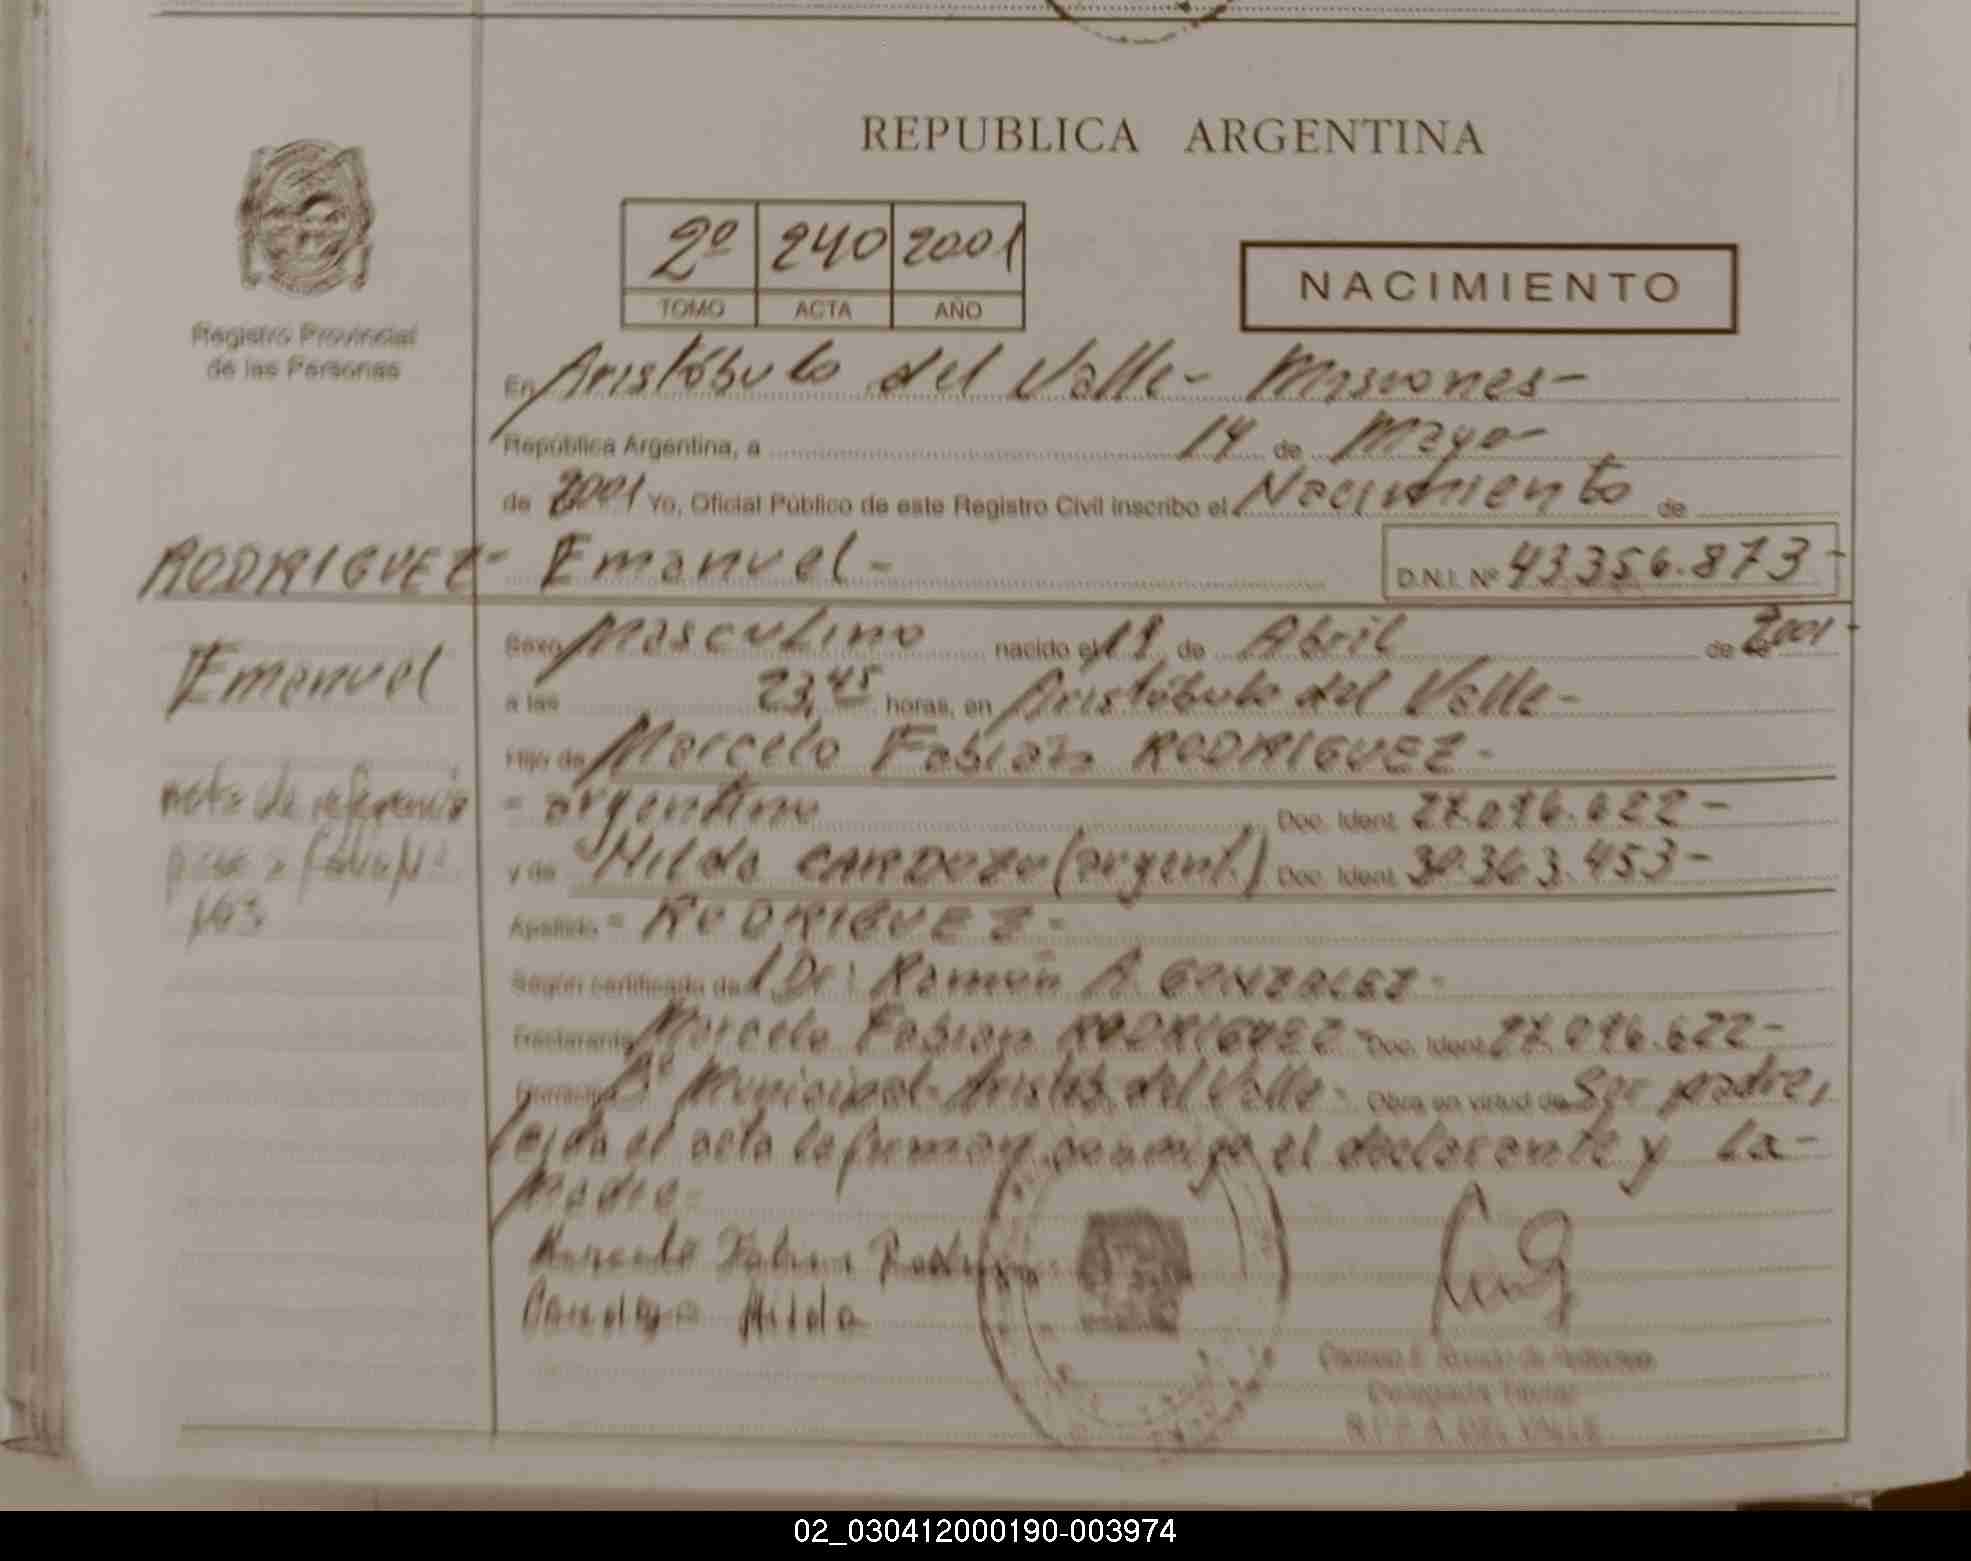 REPUBLICA ARGENTINA
2º 240 2001
TOMO ACTA AÑO
NACIMIENTO
Registro Provincial
de las Personas
En Aristóbulo del Valle - Misiones -
República Argentina, a 14 de Mayo -
de 2001 Yo, Oficial Público de este Registro Civil inscribo el Nacimiento de
RODRIGUEZ - Emanuel - D.N.I. Nº 43.356.873 -
Emanuel
Sexo Masculino nacido el 19 de Abril de 2001 -
a las 23,45 horas, en Aristóbulo del Valle -
Hijo de Marcelo Fabian RODRIGUEZ -
nota de referencia
pasa a folio Nº
163
= argentino Doc. Ident. 27.096.622 -
y de Hilda CARDOZO (argent.) Doc. Ident. 30.363.453 -
Apellido = RODRIGUEZ =
Según certificado del Dr: Ramón A. GONZALEZ -
Declarante Marcelo Fabian RODRIGUEZ - Doc. Ident. 27.096.622 -
Domicilio Bº Municipal - Aristób. del Valle - Obra en virtud de Ser padre,
leída el acta la firman conmigo el declarante y la -
Madre =
Marcelo Fabian Rodriguez
Cardozo Hilda
Delegada Titular
R.P.P. A. DEL VALLE
02_030412000190-003974